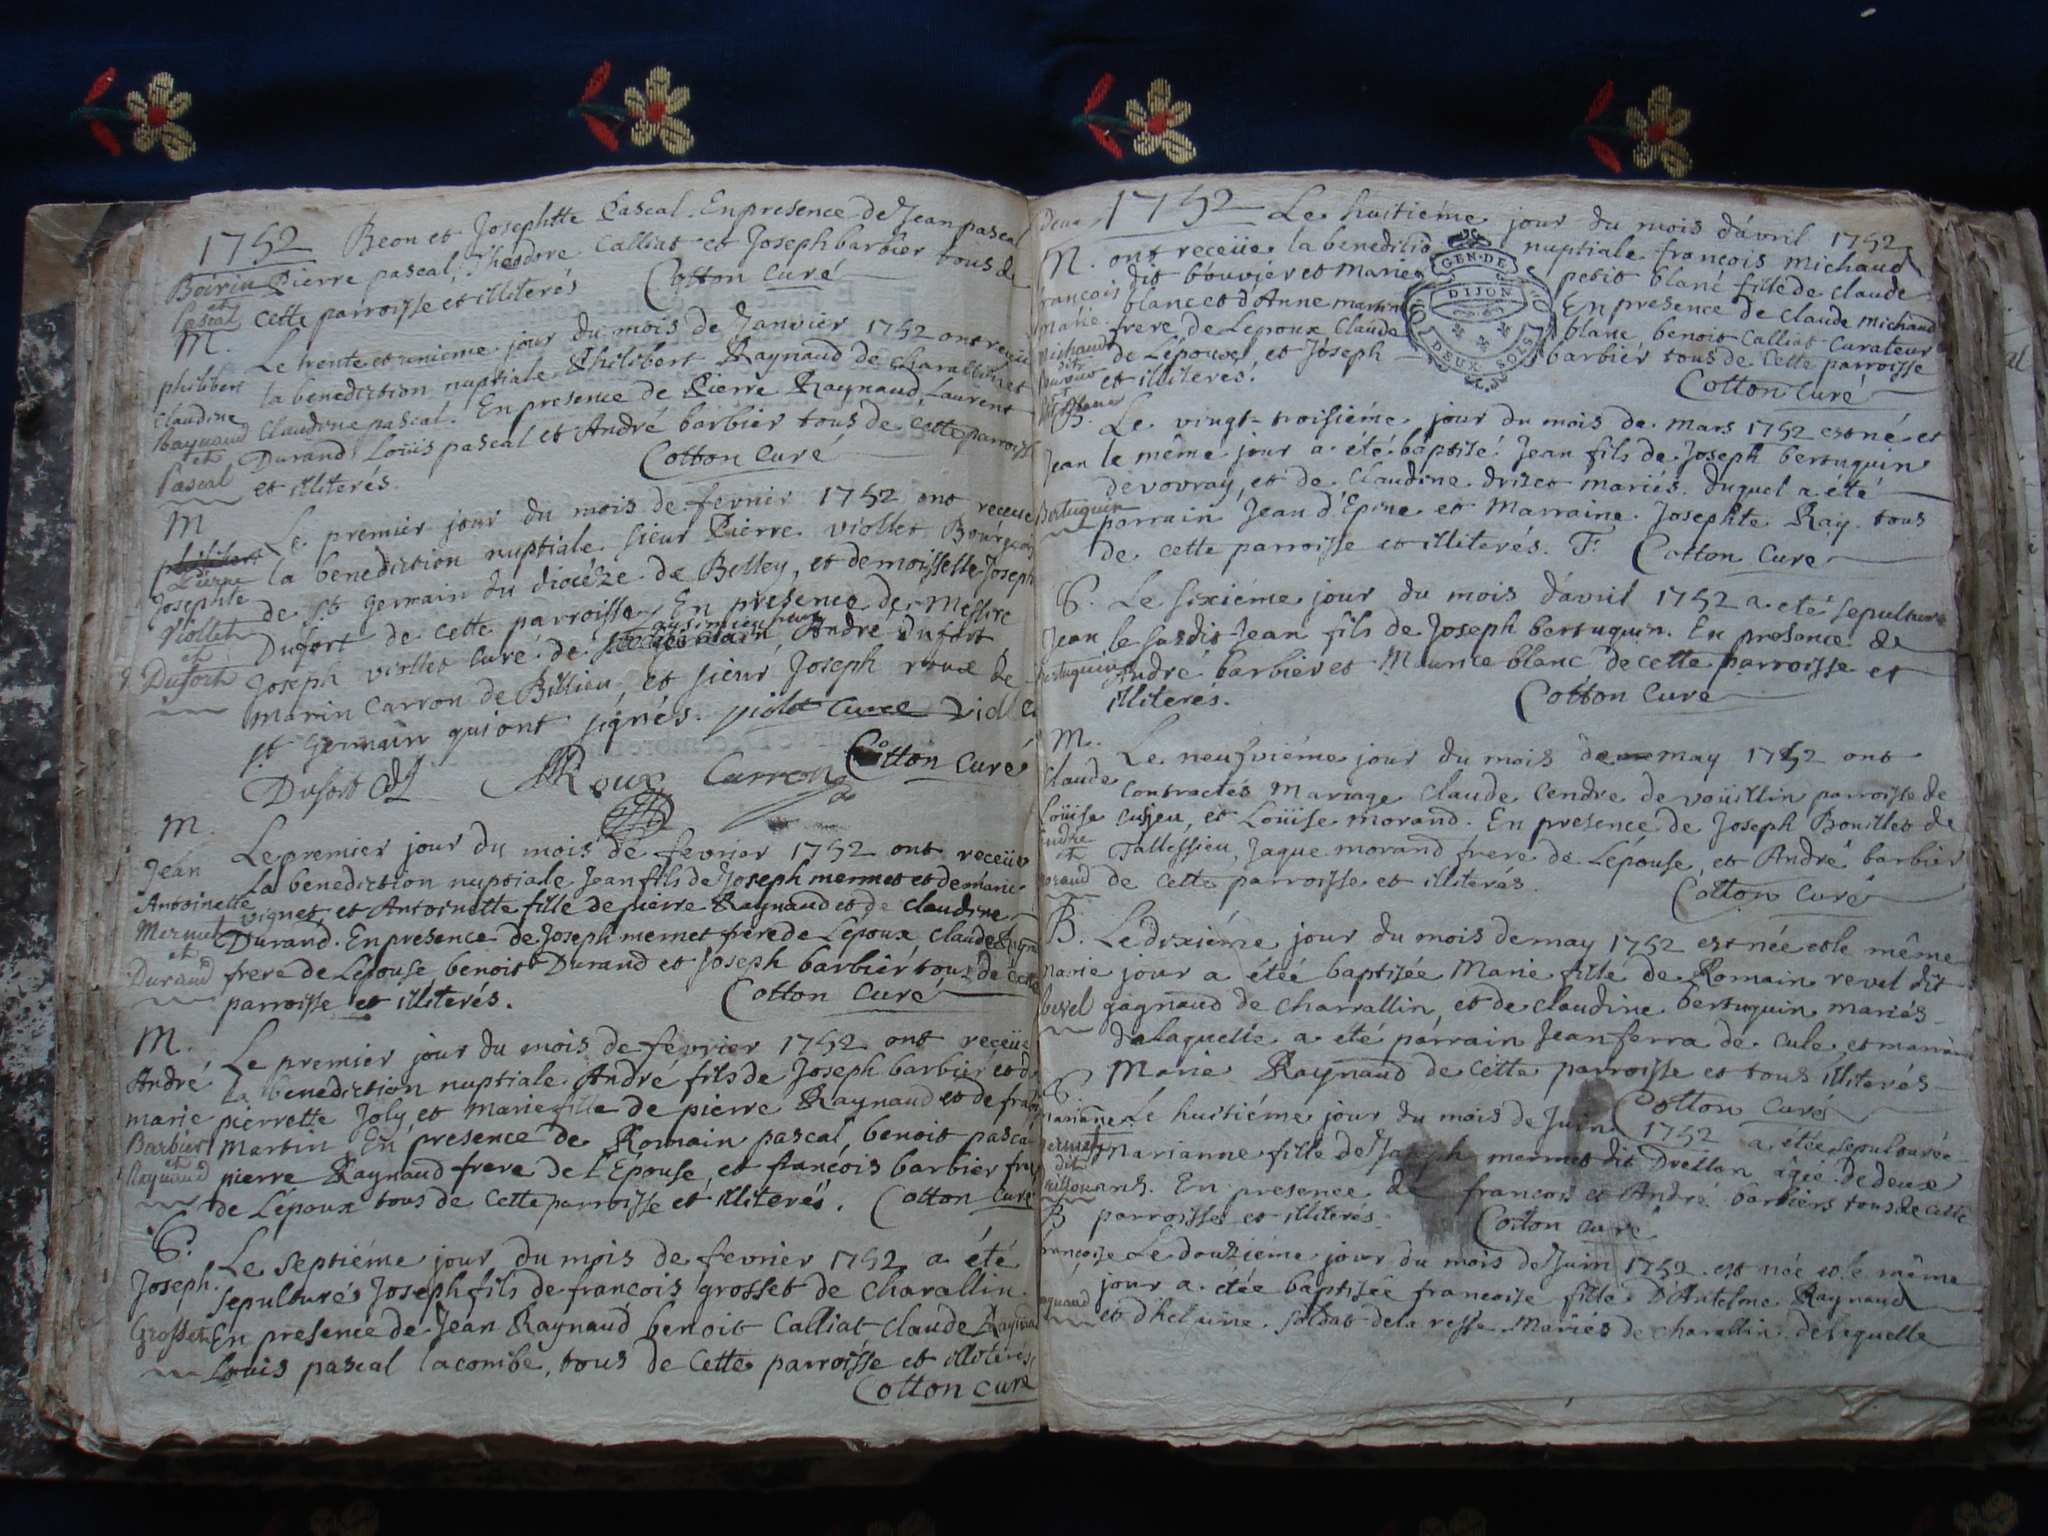 1752
Beon et Josephtte Pascal. En presence de Jean pascal
Boirin Pierre pascal, Theodore Calliat et Joseph barbier tous de
et
Pascal cette parroisse et illiterés Cotton Curé
M.
Le trente et unieme jour du mois de Janvier 1752 ont receu
philibert la benediction nuptiale Philibert Raynaud de Charallin et
Claudine
Raynaud Claudine pascal. En presence de Pierre Raynaud, Laurent
et
Durand Louis pascal et André barbier tous de cette parroisse
Pascal et illiterés. Cotton Curé
M
Le premier jour du mois de fevrier 1752 ont receue
Pierre la benediction nuptiale sieur Pierre viollet Bourgeois
Josephte de St. Germain du diocéze de Belley, et demoisselle Joseph
Viollet Dufort de cette parroisse. En presence de Messire
et
Dufort Joseph viollet Curé de André Dufort
marin Carron de Billieu, et sieur Joseph roux de
St. Germain qui ont signés. violet Curé
Dufort Roux Carron Cotton Curé
M.
Jean Le premier jour du mois de fevrier 1752 ont receüe
La benediction nuptiale Jean fils de Joseph mermet et de marie
Antoinette vignet, et Antoinette fille de pierre Raynaud et de Claudine
Mermet Durand. En presence de Joseph mermet frere de Lépoux Claude
et
Durand frere de Lépouse, benoit Durand et Joseph barbier tous de cette
parroisse et illiterés. Cotton Curé
M.
Le premier jour du mois de fevrier 1752 ont receüe
André La benediction nuptiale André fils de Joseph barbier et de
marie pierrette Joly et Marie fille de pierre Raynaud et de fran
Barbier Martin En presence de Romain pascal, benoit pascal
et
Raynaud pierre Raynaud frere de l'Épouse, et françois barbier frere
de Lépoux tous de cette parroisse et illiterés. Cotton Curé
S.
Le septiéme jour du mois de fevrier 1752 a été
Joseph. sepulturés Joseph fils de françois grosset de Charallin.
Grosset En presence de Jean Raynaud benoit Calliat, Claude Raynaud
Louis pascal lacombe, tous de cette parroisse et illiterés
Cotton Curé
1752
Le huitiéme jour du mois d'avril 1752
M. ont receüe la benedictio nuptiale françois michaud
françois dit bouvier et Marie petit blanc fille de claude
Marie blanc et d'Anne martin En presence de Claude Michaud
Michaud frere de Lépoux Claude blanc benoit Calliat Curateur
dit de Lépouse, et Joseph barbier tous de cette parroisse
et illiterés. Cotton Curé
GEN. DE
DIJON
DEUX SOLS
B. Le vingt-troisiéme jour du mois de mars 1752 est né et
Jean le même jour a été baptisé Jean fils de Joseph bertuguin
de vovray, et de Claudine drizet mariés. duquel a été
Bertuguin parrain Jean d'Epine et Marraine Josephte Ray tous
de cette parroisse et illiterés. Cotton Curé
S. Le sixieme jour du mois d'avril 1752 a eté sepulturé
Jean le susdit Jean fils de Joseph bertuguin. En presence de
Bertuguin André barbier et Maurice blanc de cette parroisse et
illiterés. Cotton Curé
M.
Le neufviéme jour du mois de may 1752 ont
Claude contractés Mariage Claude Cendre de voüillin parroisse de
Loüise Cuzieu, et Loüise morand. En presence de Joseph Bouillet de
Cendre
et Tallissieu, Jaque morand frere de Lépouse et André barbier
morand de cette parroisse et illiterés. Cotton Curé
B. Le dixiéme jour du mois de may 1752 est née et le même
Marie jour a étée baptisée Marie fille de Romain revel dit
Revel gagnaud de Charrallin, et de Claudine bertuguin mariés
de laquelle a été parrain Jean ferra de Cule, et marraine
Marie Raynaud de cette parroisse et tous illiterés
Cotton Curé
S.
Marianne Le huitiéme jour du mois de Juin 1752 a étée sepulturée
mermet Marianne fille de Joseph mermet dit Drellon âgée de deux
dit
ans. En presence de françois et André barbiers tous de cette
B parroisse et illiterés. Cotton Curé
françoise Le douziéme jour du mois de Juin 1752 est née et le même
jour a étée baptisée francoise fille D'Antelme Raynaud
Raynaud et d'helaine soldat de la resse Mariés de Charallin de laquelle